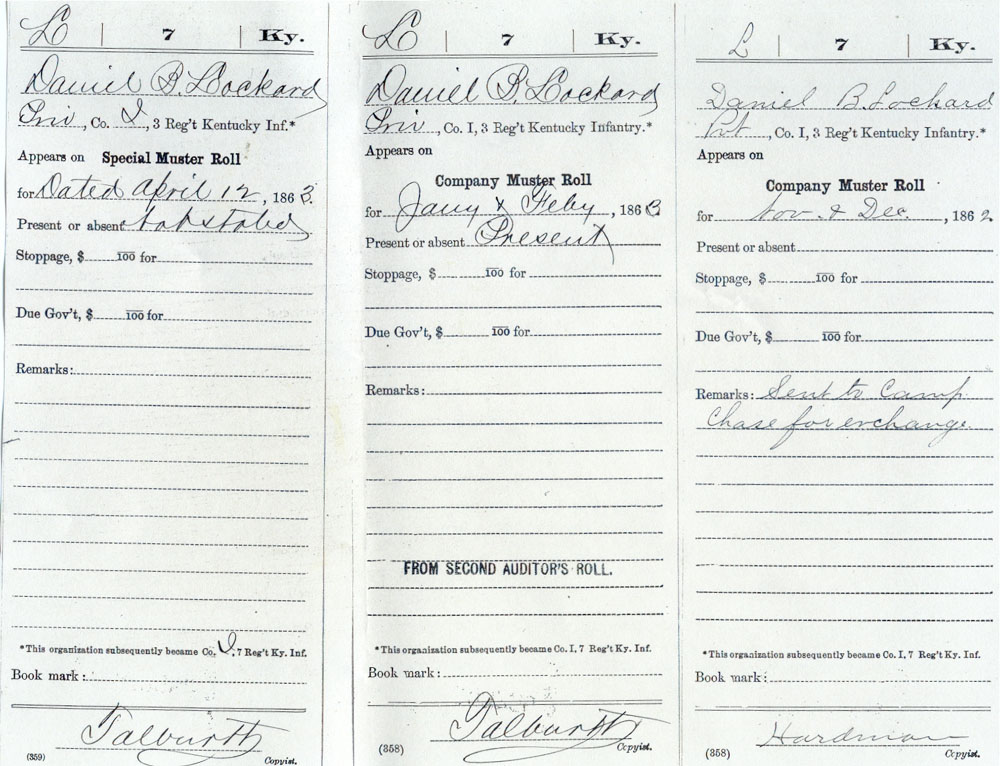 L | 7 | Ky.
Daniel B. Lockard
Priv, Co. I, 3 Reg't Kentucky Inf.*
Appears on Special Muster Roll
for Dated April 12, 1863.
Present or absent Not stated
Stoppage, $ 100 for
Due Gov't, $ 100 for
Remarks:
*This organization subsequently became Co. I, 7 Reg't Ky. Inf.
Book mark:
Talburtt
(359) Copyist.
L | 7 | Ky.
Daniel B. Lockard
Priv, Co. I, 3 Reg't Kentucky Infantry.*
Appears on
Company Muster Roll
for Jany & Feby, 1863
Present or absent Present
Stoppage, $ 100 for
Due Gov't, $ 100 for
Remarks:
FROM SECOND AUDITOR'S ROLL.
*This organization subsequently became Co. I, 7 Reg't Ky. Inf.
Book mark:
Talburtt
(358) Copyist.
L | 7 | Ky.
Daniel B. Lockard
Pvt, Co. I, 3 Reg't Kentucky Infantry.*
Appears on
Company Muster Roll
for Nov. & Dec., 1862.
Present or absent
Stoppage, $ 100 for
Due Gov't, $ 100 for
Remarks: Sent to Camp
Chase for exchange.
*This organization subsequently became Co. I, 7 Reg't Ky. Inf.
Book mark:
Hardman
(358) Copyist.